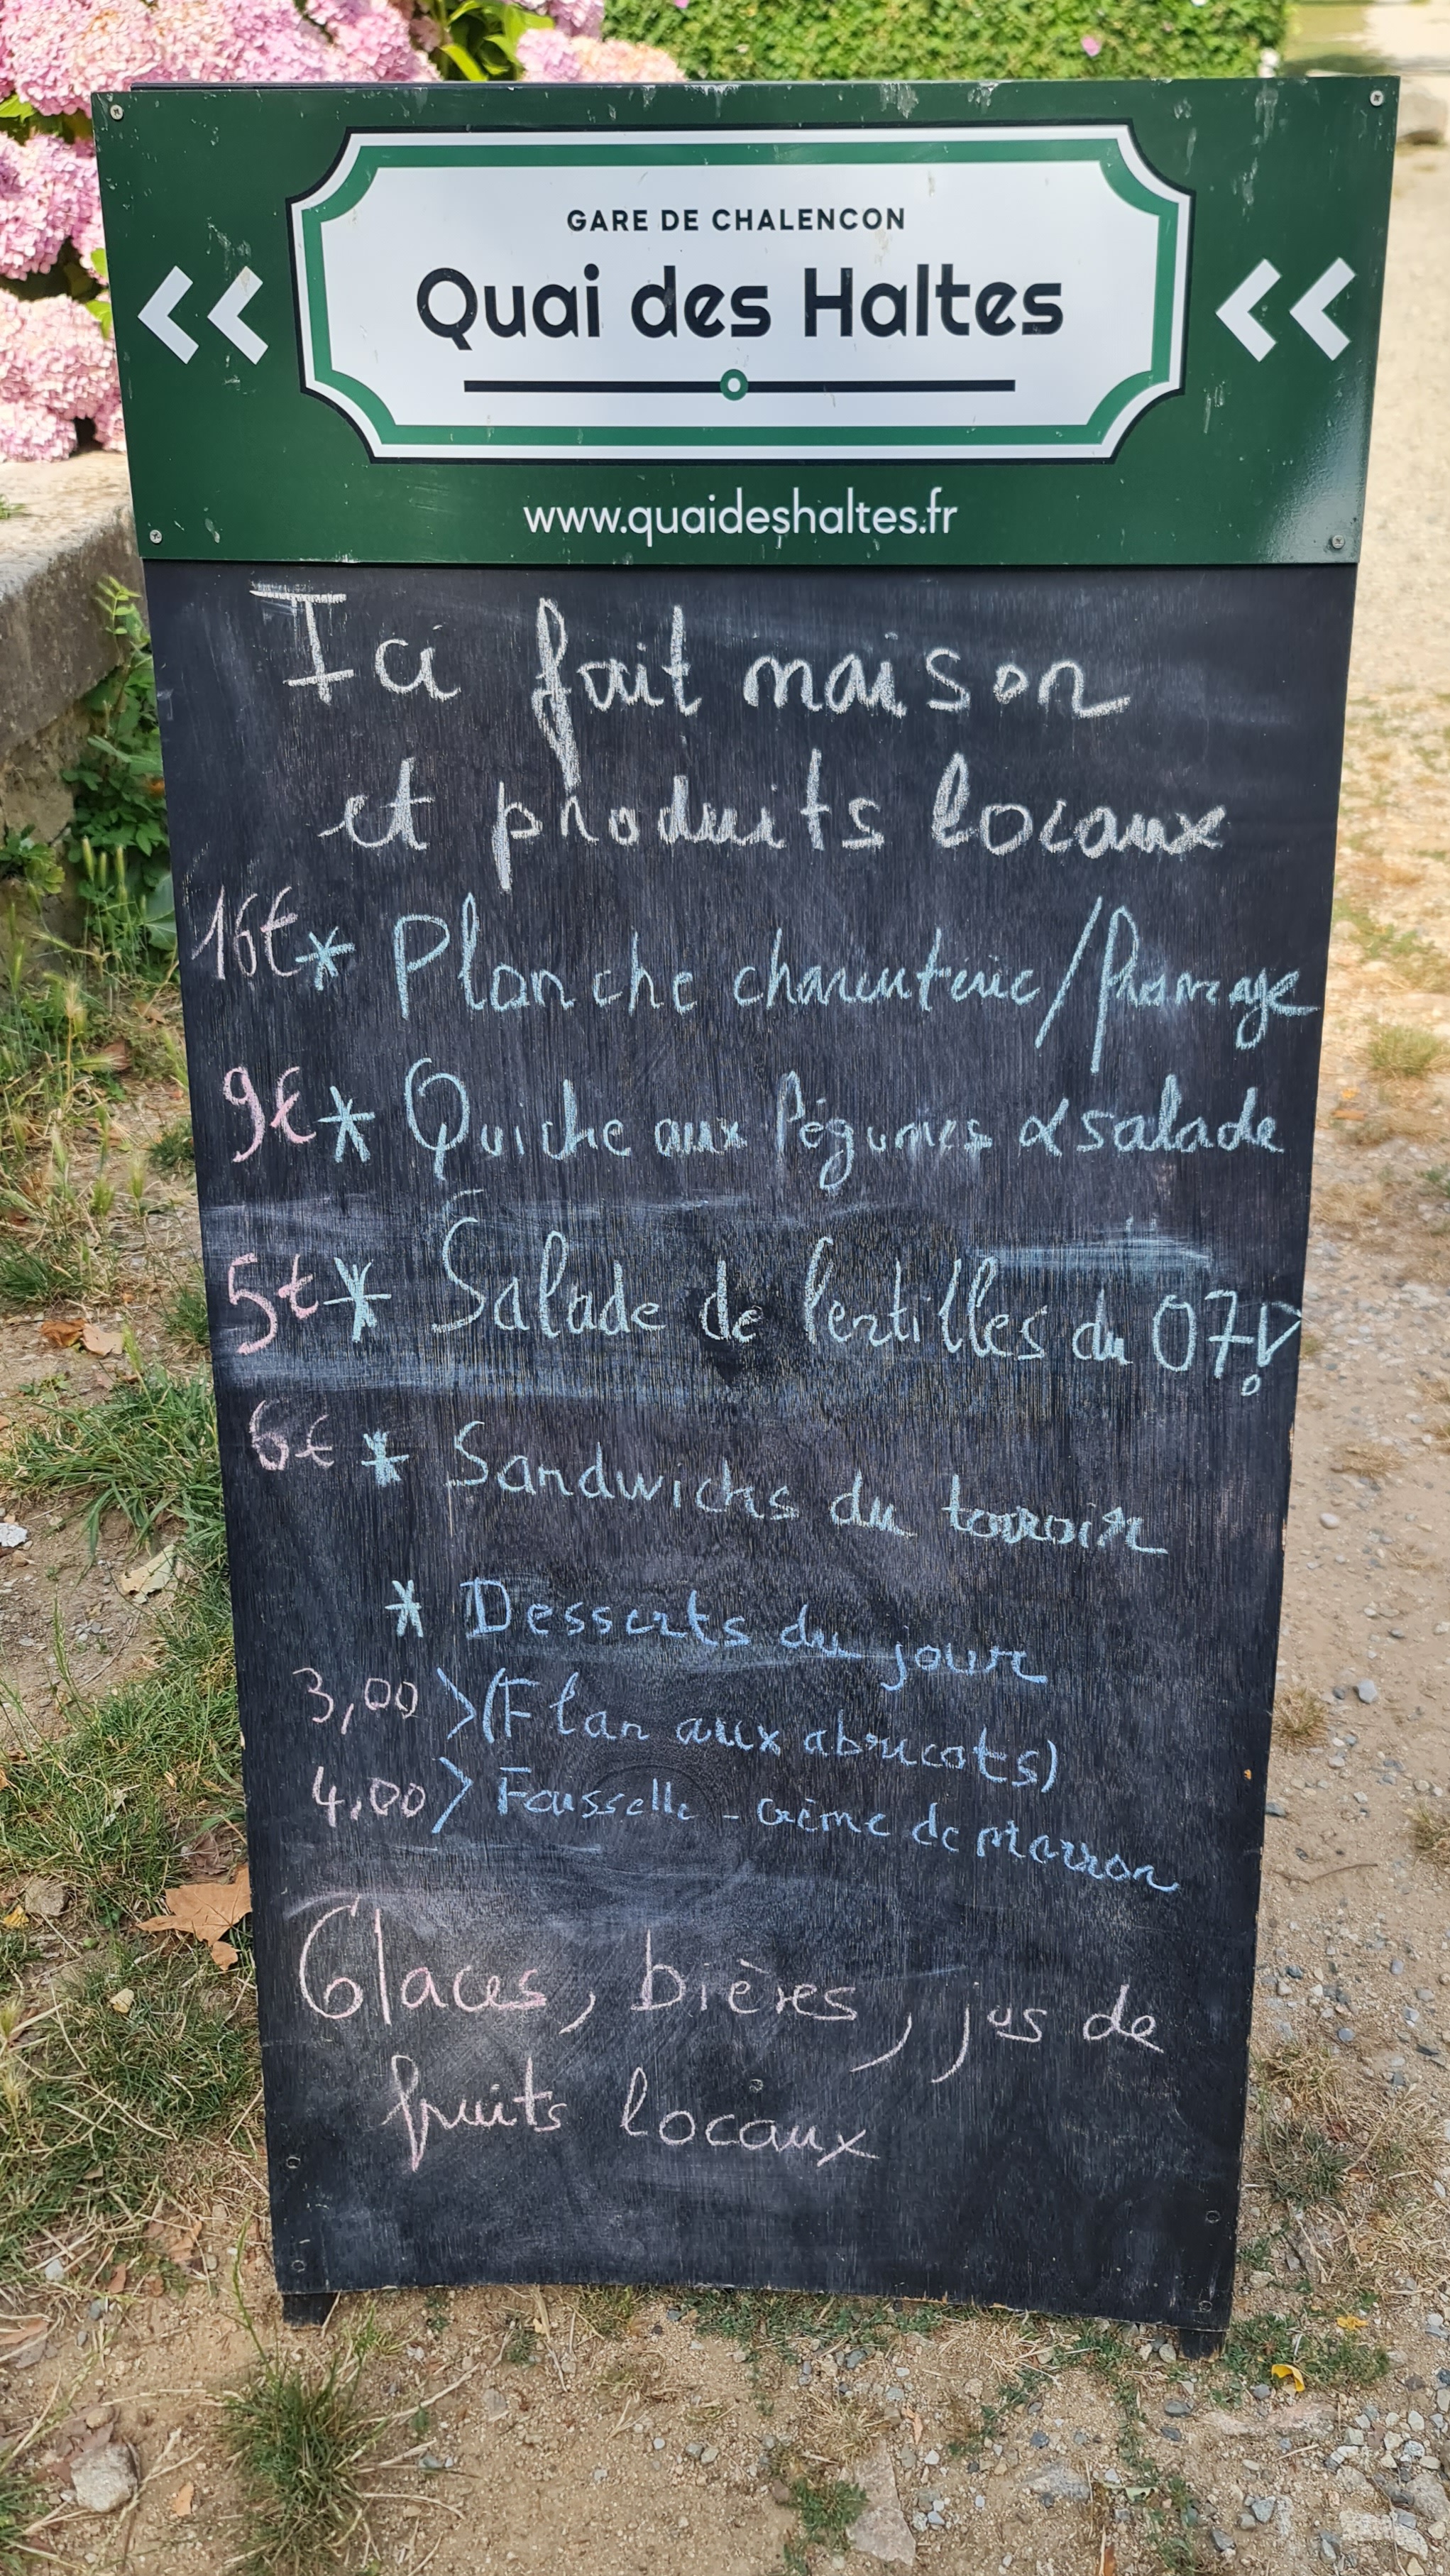 GARE DE CHALENCON
Quai des Haltes
www.quaideshaltes.fr
Ici fait maison
et produits locaux
16€ * Planche charcuterie/fromage
9€ * Quiche aux légumes & salade
5€ * Salade de lentilles du 07!
6€ * Sandwichs du terroir
* Desserts du jour
3,00 > (Flan aux abricots)
4,00 > Faisselle - crème de marron
Glaces, bières, jus de
fruits locaux